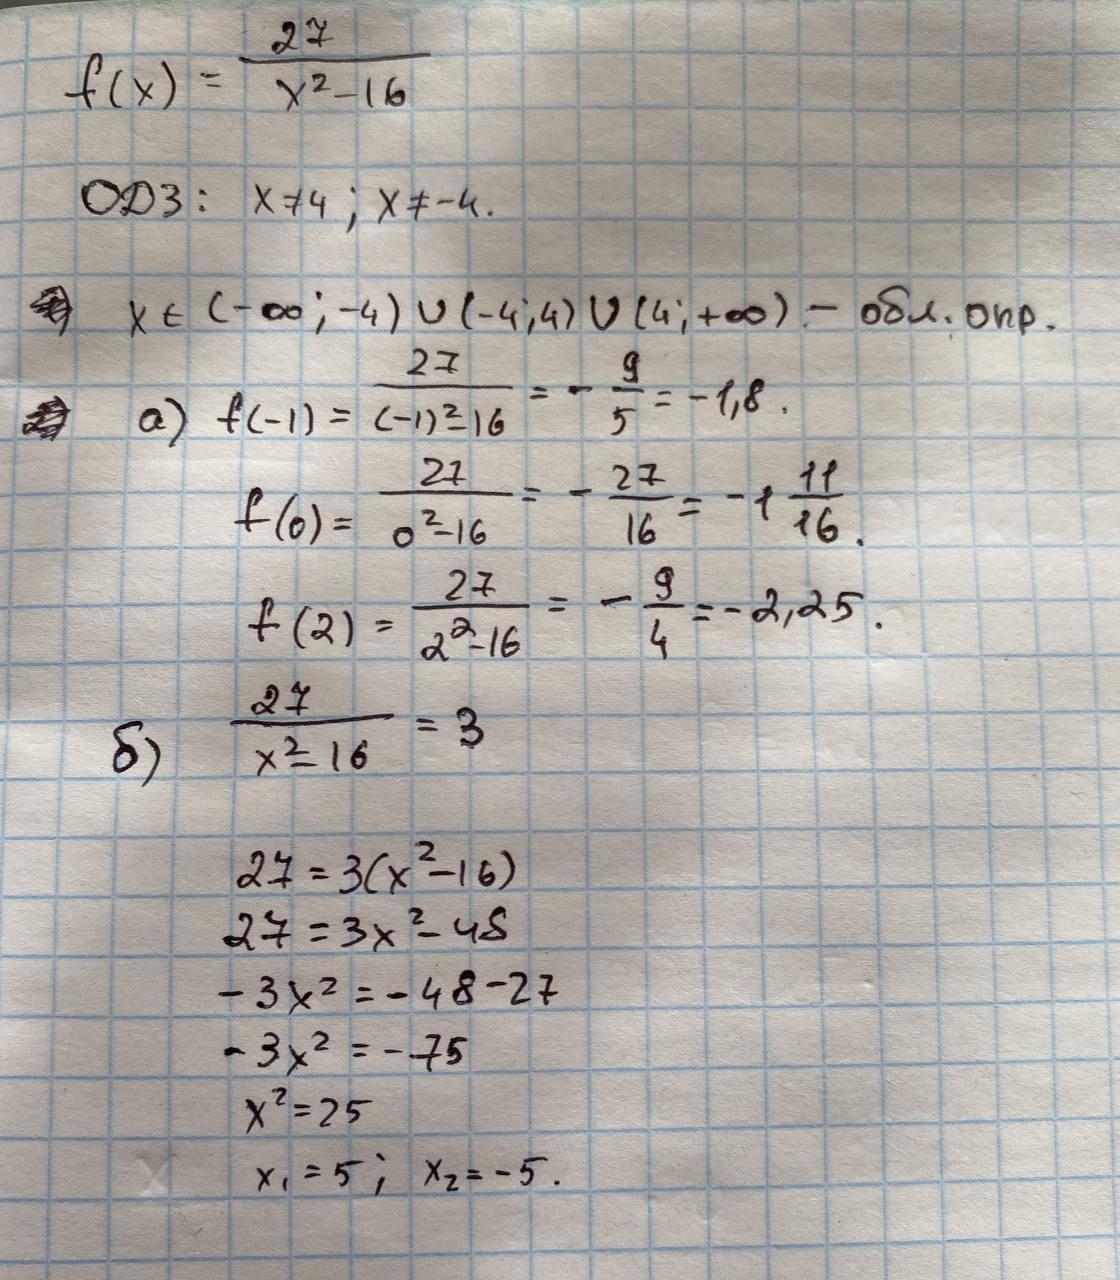 f(x) = 27/(x² - 16)
ОДЗ: x ≠ 4; x ≠ -4.
x ∈ (-∞; -4) ∪ (-4; 4) ∪ (4; +∞) - обл. опр.
а) f(-1) = 27/((-1)² - 16) = - 9/5 = -1,8.
f(0) = 27/(0² - 16) = - 27/16 = -1 11/16.
f(2) = 27/(2² - 16) = - 9/4 = -2,25.
б) 27/(x² - 16) = 3
27 = 3(x² - 16)
27 = 3x² - 48
-3x² = -48 - 27
-3x² = -75
x² = 25
x₁ = 5; x₂ = -5.